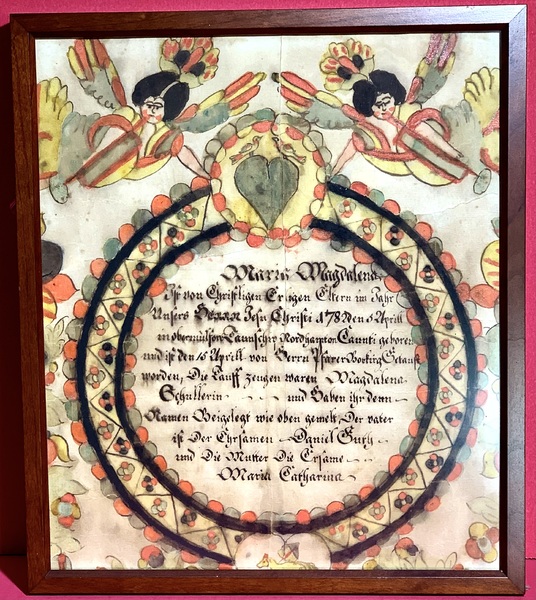 Maria Magdalena
Ist von Christligen Erligen Eltern im Jahr
Unsers Herrn Jesu Christi 1787 den 5 Aprill
in obermilford Taunschip Nordhamton Caunti geboren
und ist den 15 Aprill von Herrn Pfarer Getauft
worden, Die Tauff zeugen waren Magdalena
Schullerin - - - - und Haben ihr denn
Namen Beigelegt wie oben gemelt, Der vater
ist Der Ehrsamen - Daniel Guth -
und Die Mutter Die Ersame - -
Maria Catharina -